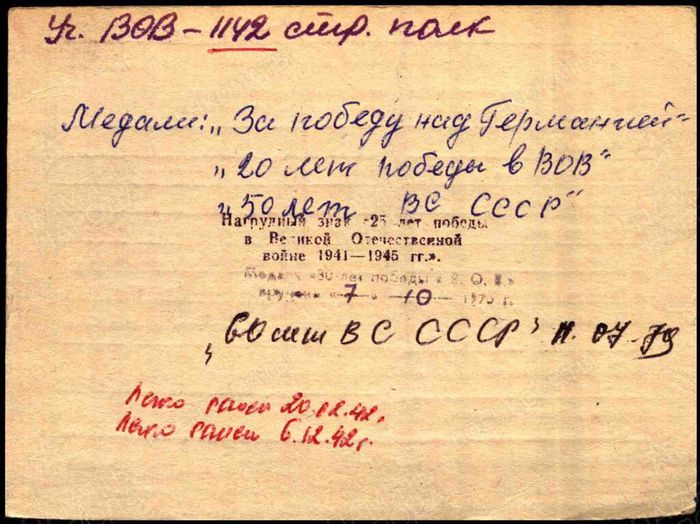 Уч. ВОВ – 1142 стр. полк
Медали: „За победу над Германией"
„20 лет победы в ВОВ"
„50 лет ВС СССР"
Нагрудный знак «25 лет победы
в Великой Отечественной
войне 1941—1945 гг.».
Медаль «30 лет победы в В. О. В.»
вручена «7» 10 1975 г.
„60 лет ВС СССР" 11.07.79
Легко ранен 20.02.42г.
Легко ранен 6.12.42г.